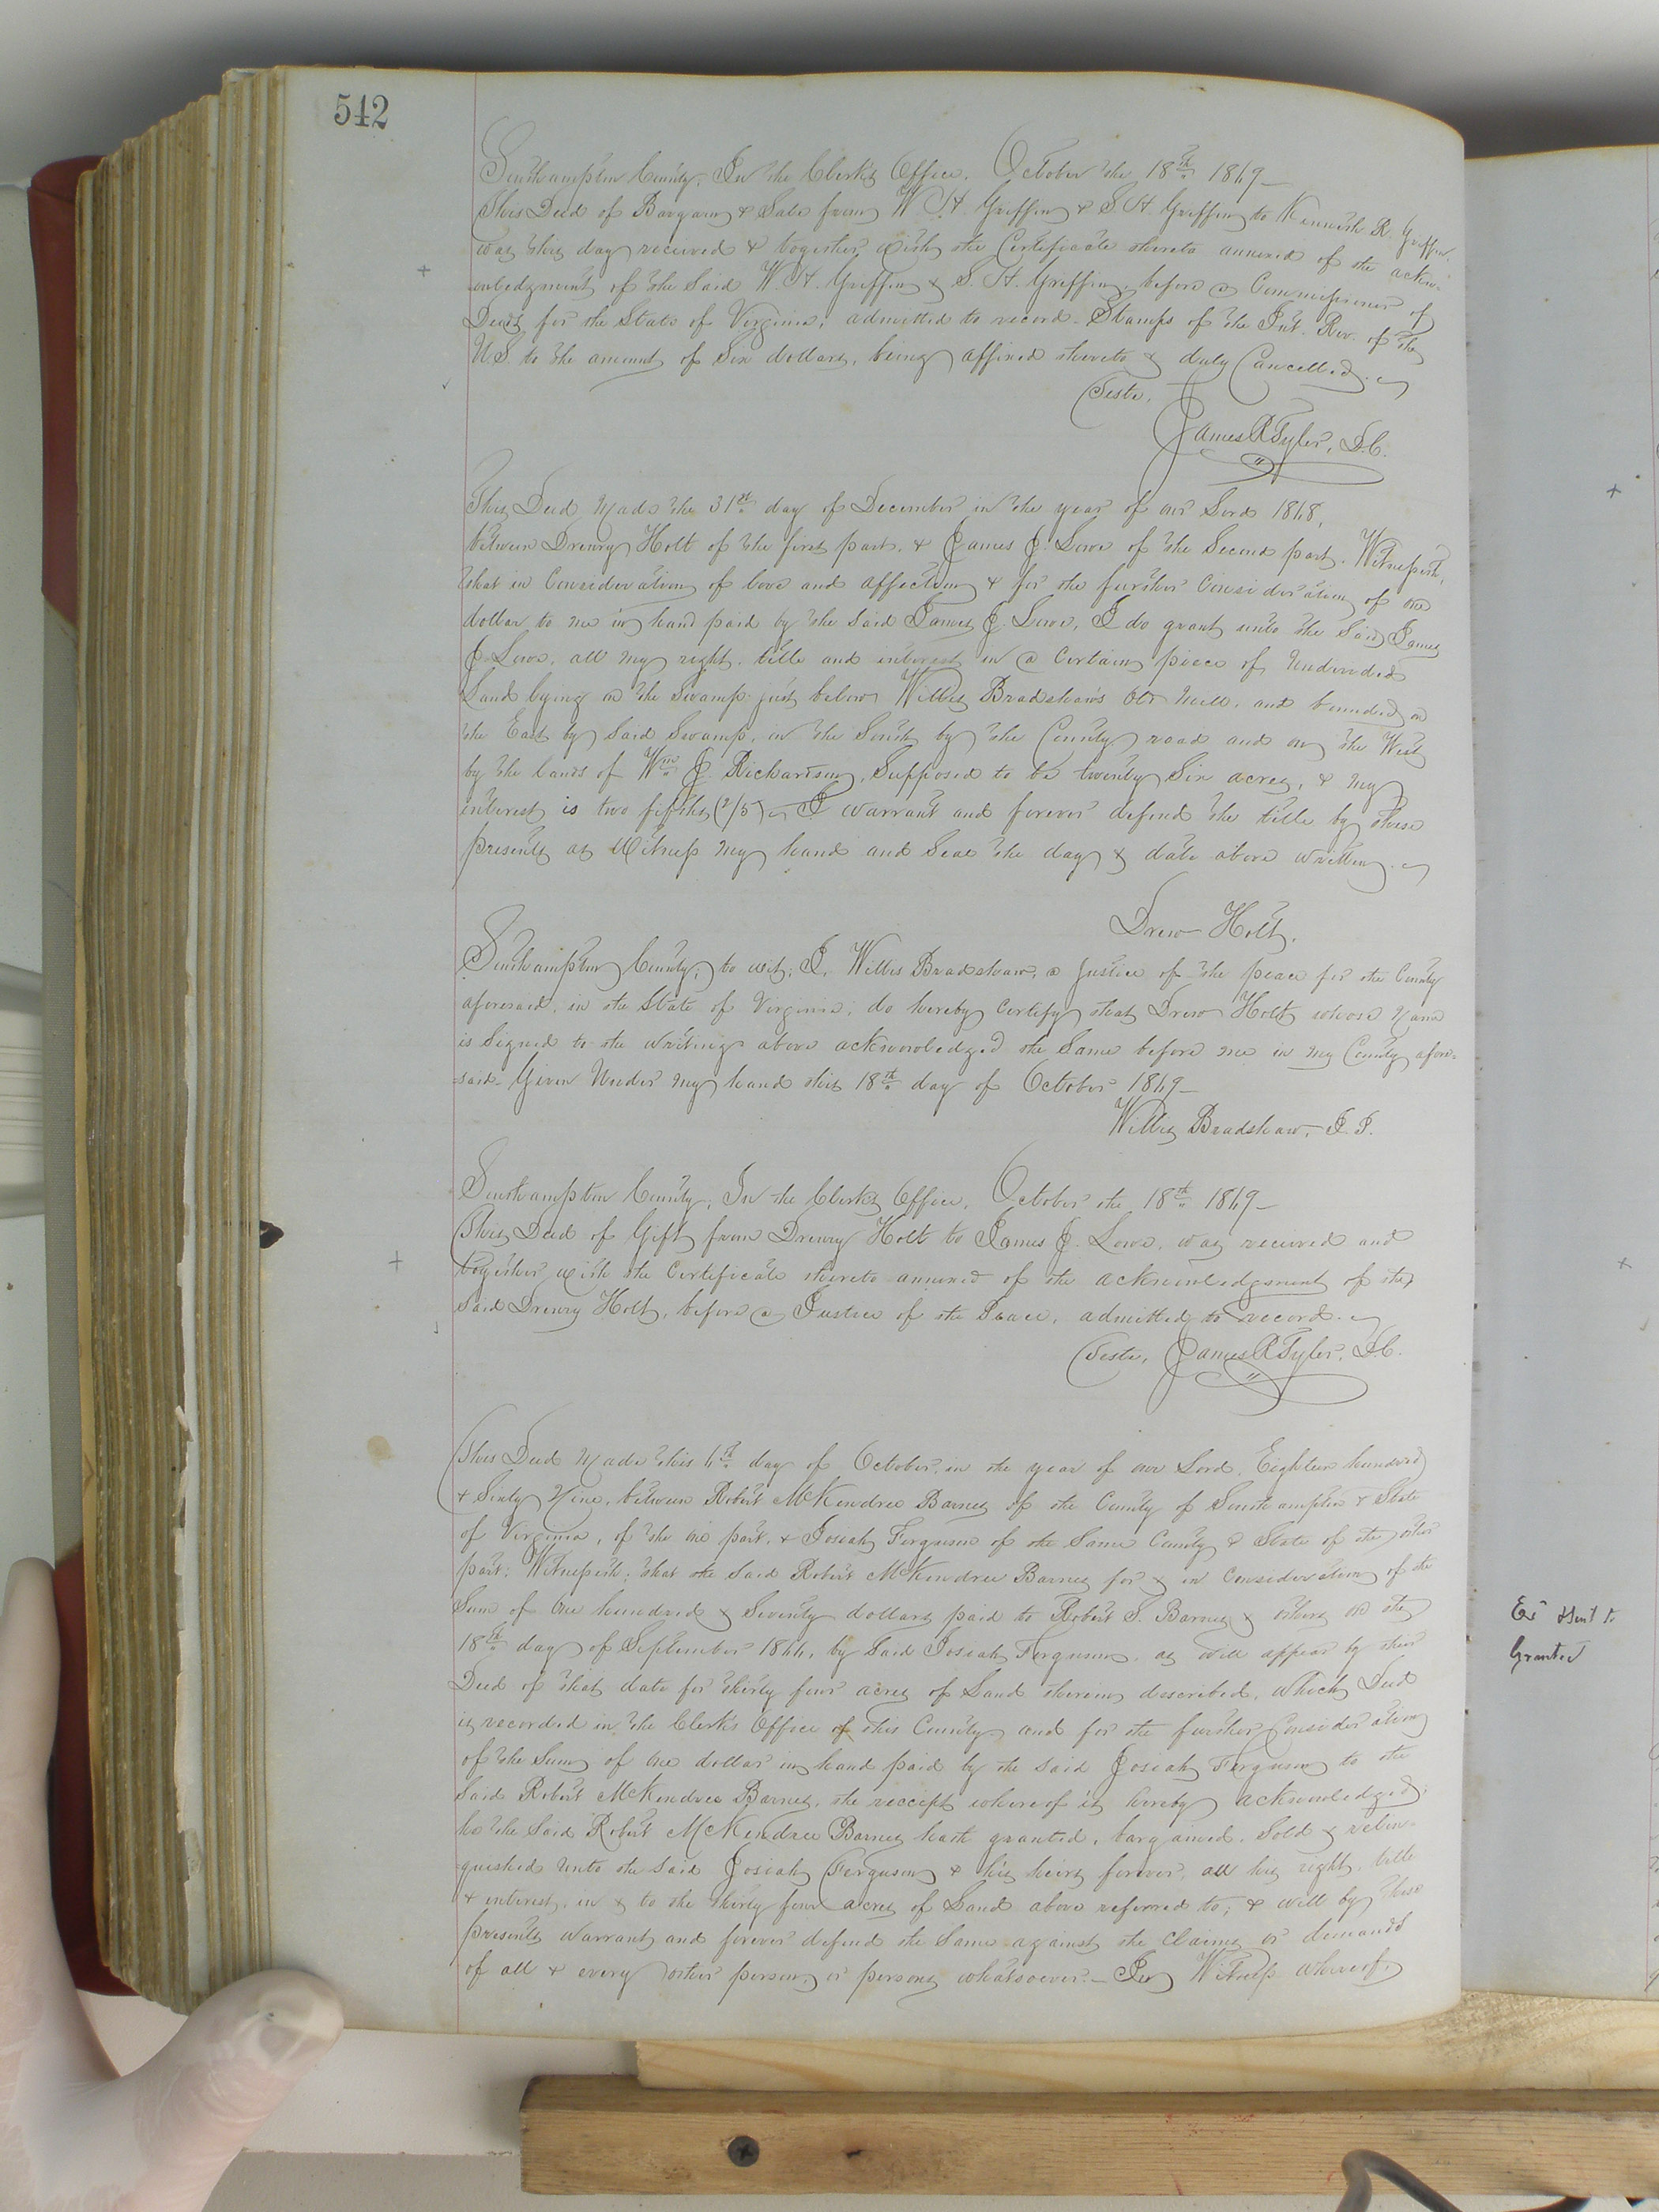 542
Southampton County, In the Clerk's Office, October the 18th 1869—
This Deed of Bargain & Sale from W. H. Griffin & S. H. Griffin to Kenneth R. Griffin,
was this day received & together with the Certificate thereto annexed of the ackn-
owledgment of the said W. H. Griffin & S. H. Griffin, before a Commissioner of
Deeds for the State of Virginia; admitted to record. Stamps of the Int. Rev. of the
U.S. to the amount of Six dollars, being affixed thereto & duly Cancelled.
Teste,
James R Tyler, D.C.
This Deed Made the 31st day of December in the year of our Lord 1868,
between Drewry Holt of the first part, & James J. Lowe of the Second part. Witnesseth,
that in Consideration of love and affection & for the further Consideration of one
dollar to me in hand paid by the said James J. Lowe, I do grant unto the Said James
J. Lowe, all my right, title and interest in a Certain piece of Undivided
Land lying on the Swamp just below Willis Bradshaw's Old Mill, and bounded on
the East by Said Swamp, in the South by the County road and on the West
by the lands of Wm J. Richardson, Supposed to be twenty Six acres, & my
interest is two fifths (2/5) I warrant and forever defend the title by these
presents as Witness my hand and Seal the day & date above written.
Drew Holt.
Southampton County, to wit; I, Willis Bradshaw, a Justice of the peace for the County
aforesaid, in the State of Virginia, do hereby Certify that Drew Holt whose Name
is Signed to the writing above acknowledged the Same before me in my County afore-
said. Given Under my hand this 18th day of October 1869—
Willis Bradshaw, J.P.
Southampton County, In the Clerk's Office, October the 18th 1869—
This Deed of Gift from Drewry Holt to James J. Lowe, was received and
together with the Certificate thereto annexed of the acknowledgment of the
said Drewry Holt, before a Justice of the Peace, admitted to record.
Teste, James R Tyler, D.C.
This Deed Made this 6th day of October, in the year of our Lord, Eighteen hundred
& Sixty Nine, between Robert McKendree Barnes of the County of Southampton & State
of Virginia, of the one part, & Josiah Ferguson of the Same County & State of the other
part; Witnesseth; that the said Robert McKendree Barnes for & in Consideration of the
Sum of One hundred & Seventy dollars paid to Robert S. Barnes & others on the
18th day of September 1866, by Said Josiah Ferguson, as will appear by their
Deed of that date for thirty four acres of Land therein described, which Deed
is recorded in the Clerk's Office of this County and for the further Consideration
of the Sum of One dollar in hand paid by the said Josiah Ferguson to the
Said Robert McKendree Barnes, the receipt whereof is hereby acknowledged;
he the Said Robert McKendree Barnes hath granted, bargained, Sold & relin-
quished unto the said Josiah Ferguson & his heirs forever, all his right, title
& interest, in & to the thirty four acres of Land above referred to; & will by these
presents warrant and forever defend the Same against the Claims or demands
of all & every other person, or persons whatsoever.— In Witness whereof,
Ex'd & Sent to
Grantee